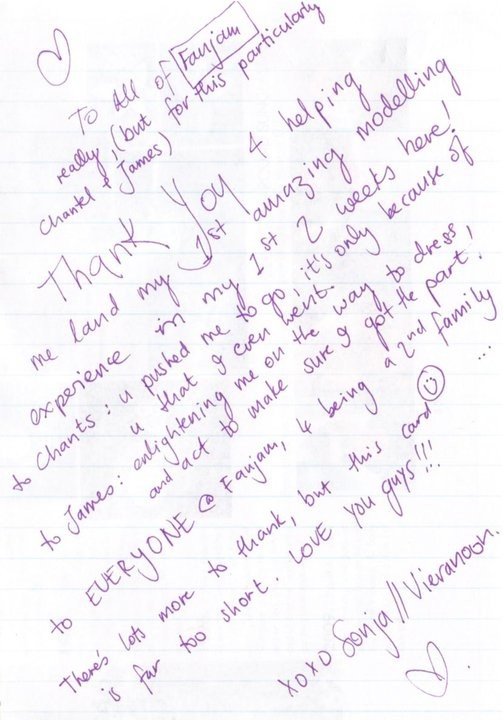 To All of Fanjam
really, (but for this particularly
Chantel & James)
Thank You 4 helping
me land my 1st amazing modelling
experience in my 1st 2 weeks here!
to Chants: u pushed me to go, it's only because of
u that I even went.
to James: enlightening me on the way to dress,
and act to make sure I got the part.
to EVERYONE @ Fanjam, 4 being a 2nd family
There's lots more to thank, but this card ...
is far too short. LOVE YOU guys!!!
xoxo Sonja // Vieranoon.